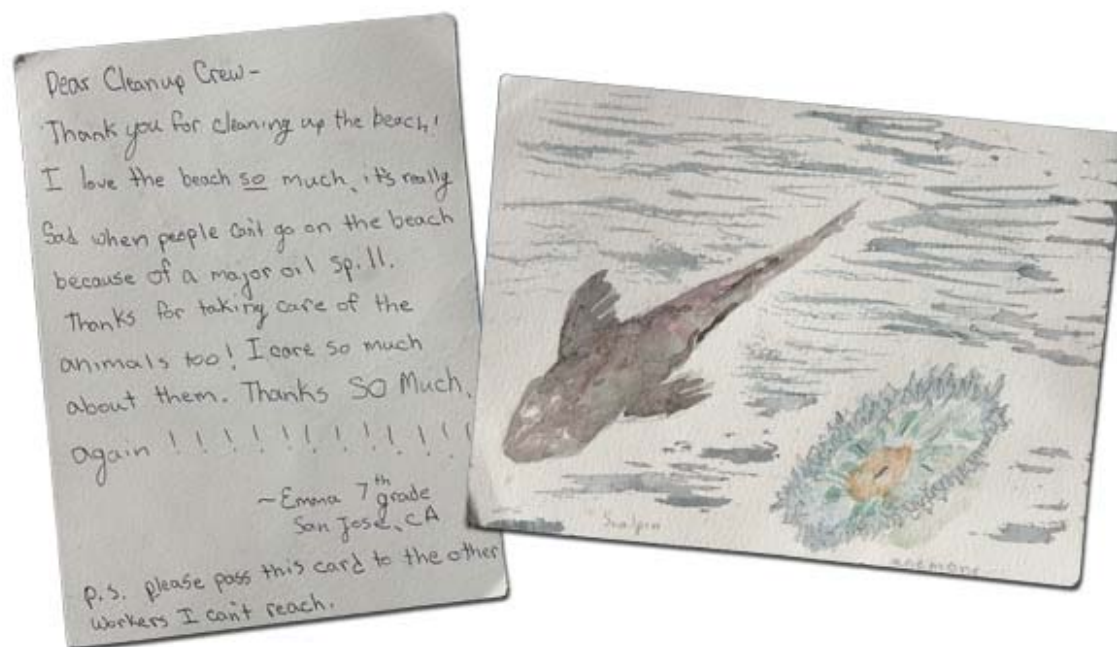 Dear Cleanup Crew-
Thank you for cleaning up the beach!
I love the beach so much, it's really
Sad when people can't go on the beach
because of a major oil spill.
Thanks for taking care of the
animals too! I care so much
about them. Thanks SO Much,
again ! ! ! ! ! ! ! ! ! ! ! !
~Emma 7th grade
San Jose, CA
P.S. please pass this card to the other
workers I can't reach.
Sculpin
anemone